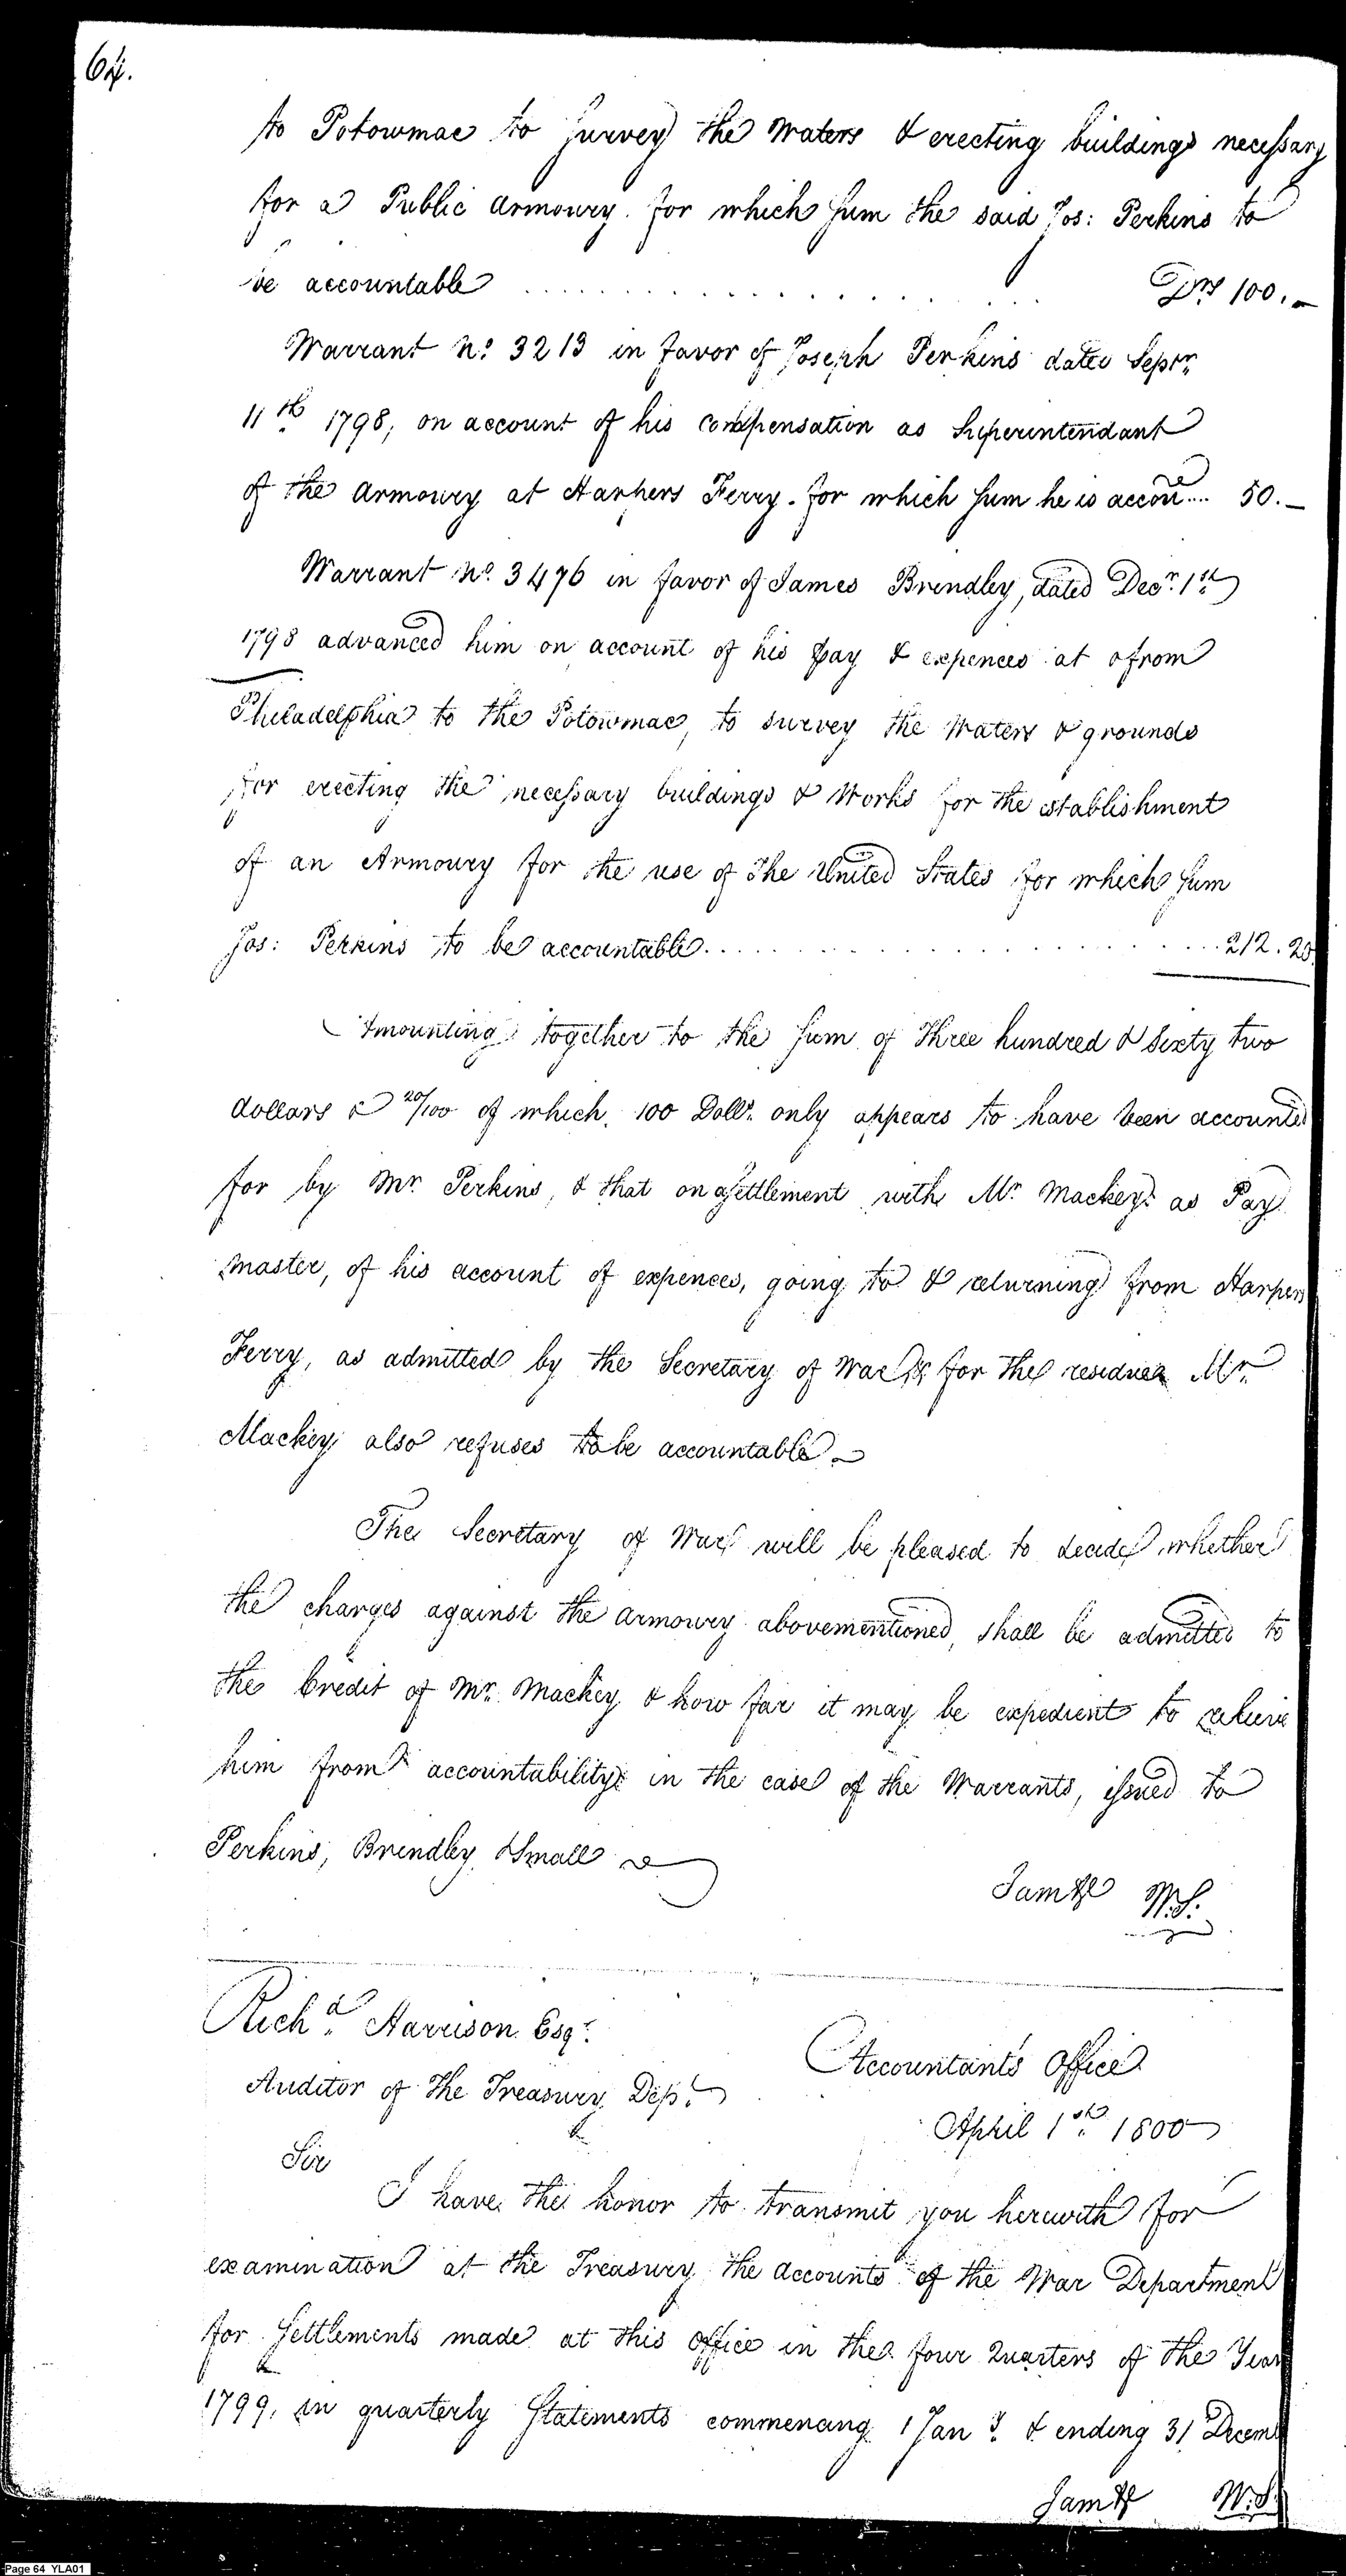 64.
to Potowmac to survey the Waters & erecting buildings necessary
for a Public Armoury. for which sum the said Jos: Perkins to
be accountable . . . . . . . . . . . . . . . . . . . Drs 100.–
Warrant No. 3213 in favor of Joseph Perkins dated Septr.
11th 1798, on account of his compensation as Superintendant
of the Armoury at Harpers Ferry. for which sum he is accou.... 50.–
Warrant No. 3476 in favor of James Brendley, dated Decr. 1st
1798 advanced him on account of his pay & expences at & from
Philadelphia to the Potowmac, to survey the Waters & grounds
for erecting the necessary buildings & Works for the establishment
of an Armoury for the use of the United States for which sum
Jos: Perkins to be accountable . . . . . . . . . . . . . . . . 212.20
Amounting together to the sum of Three hundred & sixty two
dollars & 20/100 of which, 100 Dolls. only appears to have been accounted
for by Mr. Perkins, & that on a settlement with Mr. Mackey as Pay
master, of his account of expences, going to & returning from Harpers
Ferry, as admitted by the Secretary of War for the residue Mr.
Mackey also refuses to be accountable –
The Secretary of War will be pleased to decide whether
the charges against the armoury abovementioned, shall be admitted to
the Credit of Mr. Mackey & how far it may be expedient to relieve
him from accountability in the case of the Warrants, issued to
Perkins, Brendley, & Small
I am &c W.S.
Richd. Harrison Esqr.
Auditor of the Treasury Dept.
Accountants Office
April 1st 1800
Sir
I have the honor to transmit you herewith for
examination at the Treasury the accounts of the War Department
for Settlements made at this office in the four Quarters of the Year
1799, in quarterly Statements commencing 1 Jany. & ending 31 Decem
I am &c W.S.
Page 64 YLA01